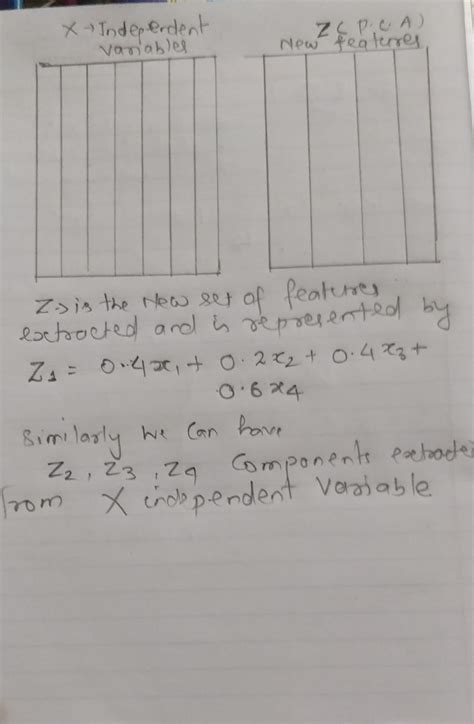 X → Independent
variables
Z ( P.C.A)
New features
Z → is the New set of features
extracted and is represented by
Z1 = 0.4x1 + 0.2x2 + 0.4x3 +
0.6x4
Similarly we can have
Z2, Z3, Z4 Components extracte
from X independent variable